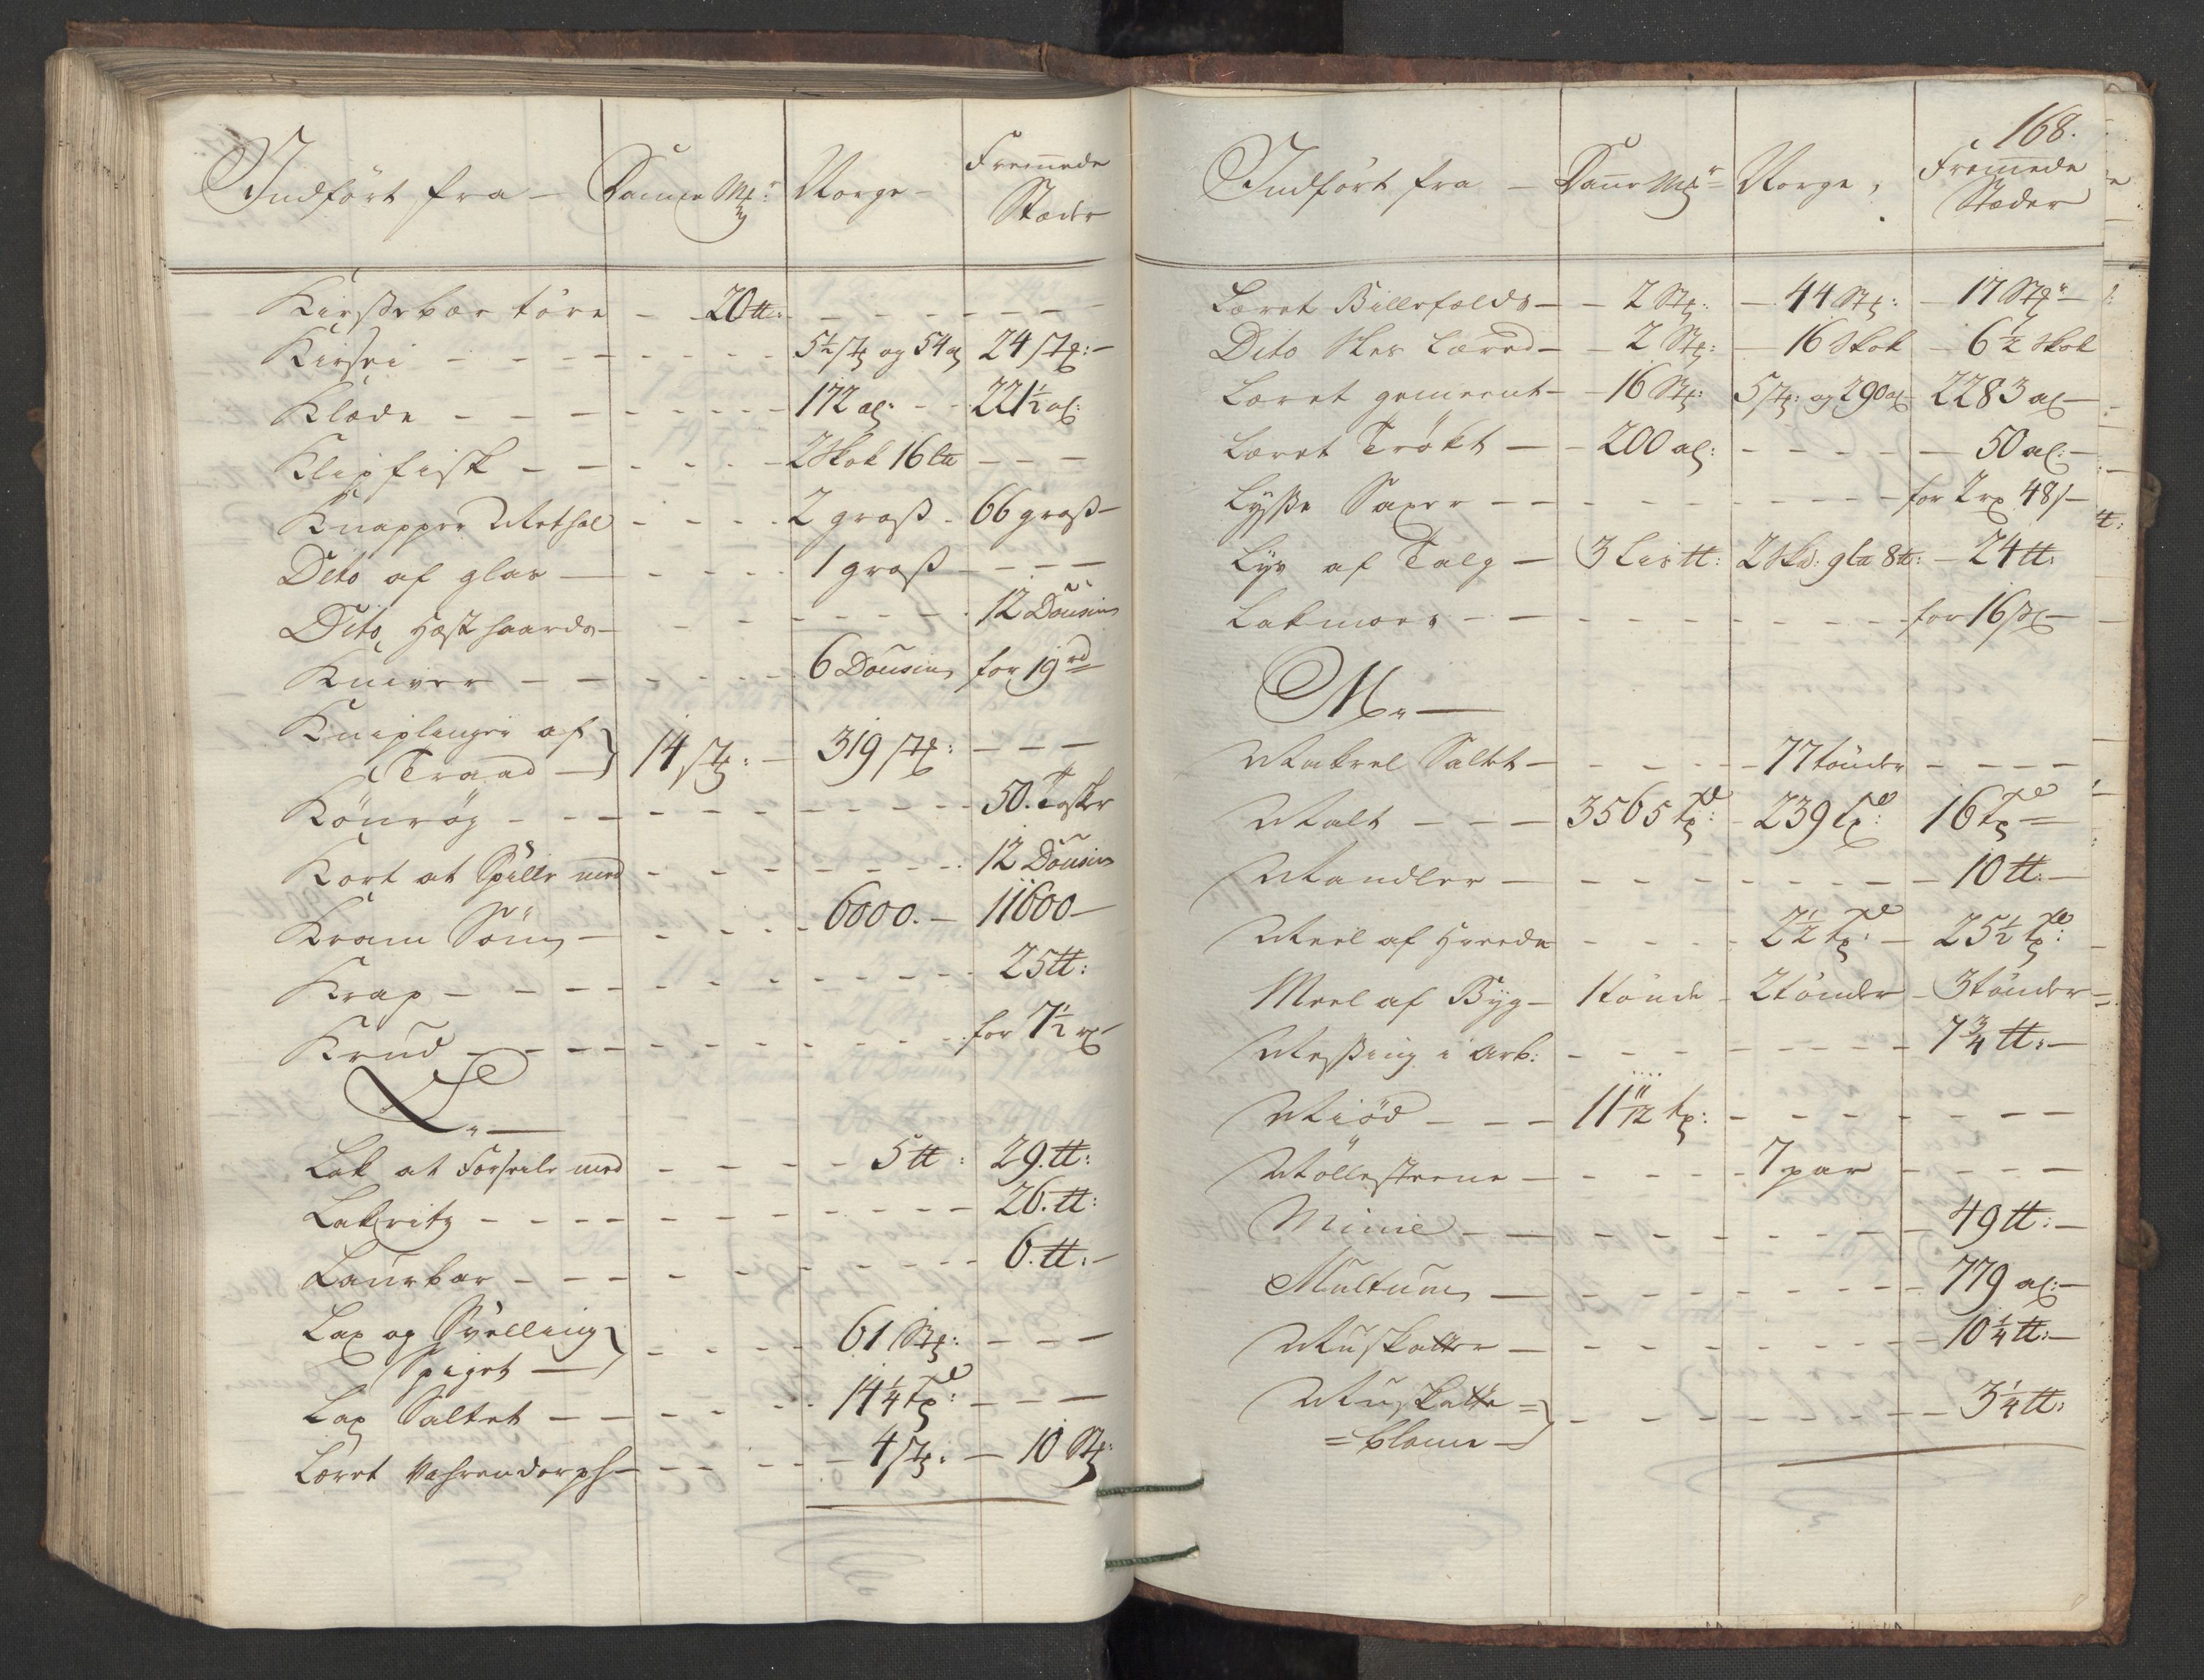 Indført fra – Danne Mk: Norge – Fremmede Stæder
Kirssebær tøre – – 20 tt: – – – – – –
Kirsei – – – – – – – 5½ stk og 54 al 24 stk: –
Klæde – – – – – – – 172 al: – – 221½ al:
Klipfisk – – – – – – 2 Skok 16 – – –
Knapper Methal – – – – 2 gross – 66 gross –
Dito af glas – – – – 1 gross – – – –
Dito Hæst haards – – – – – – – 12 Dousin
Kniver – – – – – – 6 Dousin for 19 rd
Kniplinger af
Traad – 14 stk: – 319 stk: – – –
Kønrøg – – – – – – – – – 50. Tøsker
Kort at Spille med – – – – – – – 12 Dousin
Kram Søm – – – – – 6000. – 11600 –
Krap – – – – – – – – – – 25 tt:
Krud – – – – – – – – – – for 7½ rd –
L. –
Lak at Forseile med – – – – 5 tt: 29. tt:
Lakritz – – – – – – – – – – 26. tt:
Laurbær – – – – – – – – – 6. tt: –
Lax og Svelling
Spiget – – – – – 61 Stk: – – –
Lax Saltet – – – – – – 14¼ td: – – –
Læret Vahrendorph – – – – – 4 stk: – 10 Stk:
168.
Indført fra – Danne Mk Norge, Fremmede Stæder
Læret Billefelds – – 2 Stk: – 44 Stk: – 17 Stk –
Dito Sles Læred – – 2 Stk: – 16 Skok – 6½ Skok
Læret gemeent – – 16 Stk: 5 stk: og 290 al 2283 al –
Læret Trøkt – – 200 al: – – – – – 50 al: –
Lysse Saxer – – – – – – – – for 2 rd 48 s –
Lys af Talg – 3 Lis tt: 2 Skd: 9 8 tt: – 24 tt:
Lakmoes – – – – – – – – for 16 –
M. –
Makrel Saltet – – – – – 77 tønder – – – –
Malt – – – 3565 td: – 239 td: 16 td –
Mandler – – – – – – – – – 10 tt: –
Meel af Hvede – – – – 2½ td: – 25½ td:
Meel af Byg – 1 tønde – 2 tønder – 3 tønder –
Messing i Arb: – – – – – – – – 7¾ tt: –
Miød – – – 11 11/12 td: – – – – – – –
Møllesteene – – – – – 7 par – – – –
Minie – – – – – – – – – 49 tt: –
Multum – – – – – – – – 779 al: –
Muskatter – – – – – – – – 10¼ tt: –
Muskatte =
= blome – – – – – – – – – 3¼ tt: